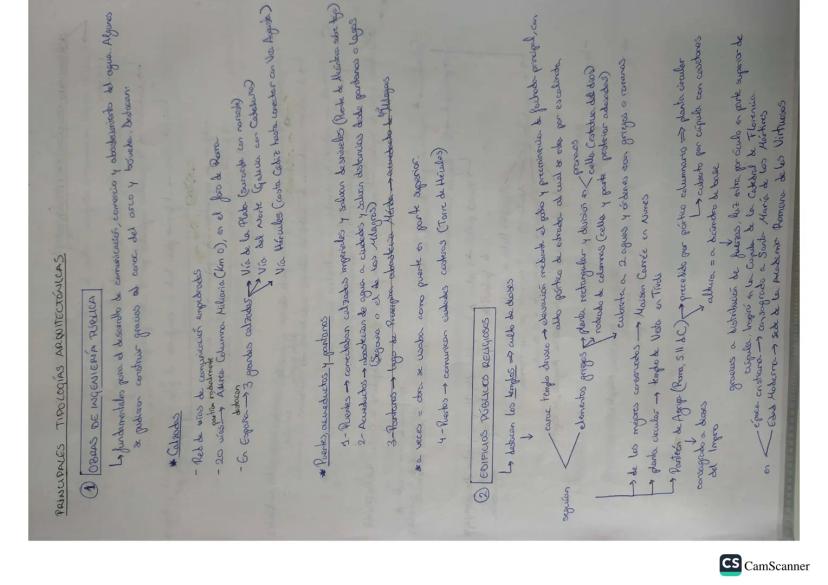 PRINCIPALES TIPOLOGÍAS ARQUITECTÓNICAS
① OBRAS DE INGENIERÍA PÚBLICA
↳ fundamentales para el desarrollo de comunicación, comercio y abastecimiento del agua. Algunos
se pudieron construir gracias al conoc. del arco y bóveda. Destacan
* Calzadas
- Red de vías de comunicación empedradas
partían radialmente
- 20 vías → Columna Miliaria (km 0), en el foro de Roma
destacan
- En España → 3 grandes calzadas → Vía de la Plata (suroeste con noroeste)
Vía del Norte (Galicia con Cataluña)
Vía Hércules (costa Cádiz hasta conectar con Vía Augusta)
* Puentes, acueductos y pantanos
1- Puentes → conectaban calzadas imperiales y salvan desniveles (Puente de Alcántara sobre Tajo)
2- Acueductos → abastecían de agua a ciudades y salvan distancias desde pantanos o lagos
(Segovia o el de los Milagros)
3- Pantanos → lago de Proserpina abastecía Mérida → acueducto de Milagros
* a veces = obra se usaba como puente en parte superior
4- Puertos → comunican ciudades costeras (Torre de Hércules)
② EDIFICIOS PÚBLICOS RELIGIOSOS
↳ destacan los templos → culto de dioses
seguían
caract. templo etrusco → elevación mediante el podio y preeminencia de fachada principal, con
alto pórtico de entrada al cual se sube por escalinata
elementos griegos → planta rectangular y división en pronaos
cella (estatua del dios)
rodeado de columnas (cella y parte posterior adosadas)
cubierta a 2 aguas y órdenes son griegos o romanos
→ de los mejores conservados → Maison Carrée en Nimes
→ planta circular → templo de Vesta en Tívoli
→ Panteón de Agripa (Roma, S II d.C) → precedido por pórtico columnario → planta circular
consagrado a dioses
del Imperio
↳ cubierto por cúpula con casetones
altura = a diámetro de base
gracias a distribución de fuerzas, luz entra por óculo en parte superior de
cúpula. Inspiró en la Cúpula de la Catedral de Florencia
en
época cristiana → consagrado a Santa María de los Mártires
Edad Moderna → sede de la Academia Romana de los Virtuosos
CS CamScanner